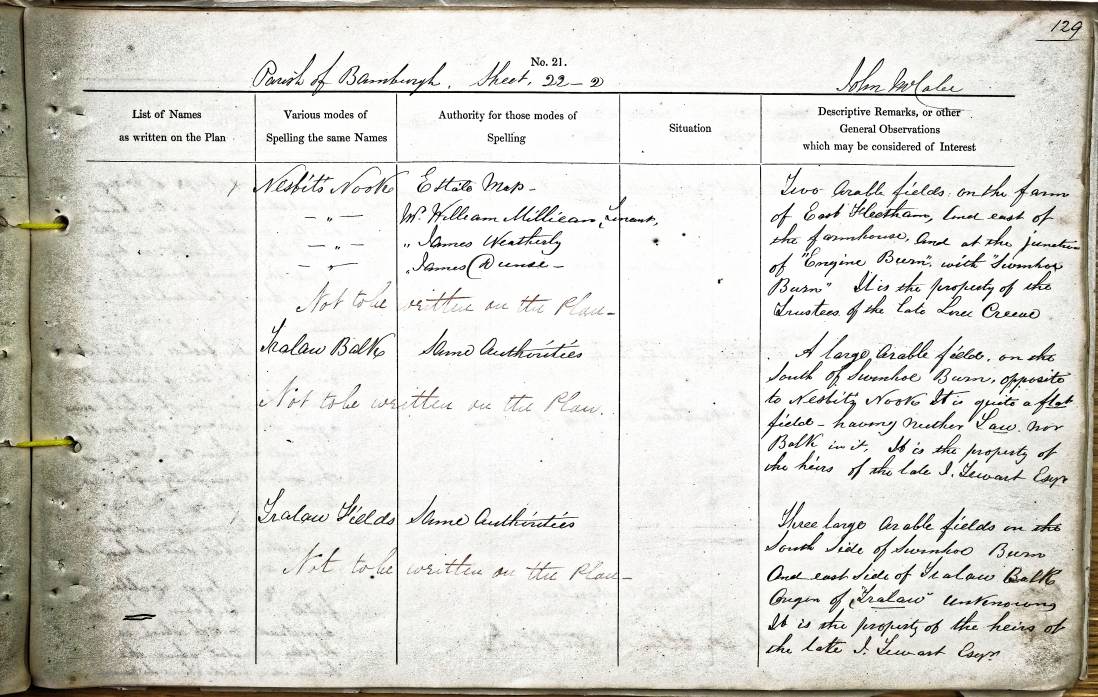 129
No. 21.
Parish of Bamburgh. Sheet. 22-2
John McCabe
List of Names
as written on the Plan
Various modes of
Spelling the same Names
Authority for those modes of
Spelling
Situation
Descriptive Remarks, or other
General Observations
which may be considered of Interest
Nesbits Nook
Estate Map-
- „ -
Mr. William Millican, Tenant,
- „ -
„ James Weatherly
- „ -
„ James Dunse-
Not to be written on the Plan-
Two arable fields on the farm
of East Fleetham, and east of
the farmhouse, and at the junction
of "Engine Burn" with "Swinhoe
Burn" It is the property of the
Trustees of the late Lord Crewe
Tralaw Balk
Same Authorities
Not to be written on the Plan.
A large arable field, on the
South of Swinhoe Burn, opposite
to Nesbits Nook It is quite a flat
field - having neither Law nor
Balk in it. It is the property of
the heirs of the late J. Tewart Esqr
Tralaw Fields
Same Authorities
Not to be written on the Plan-
Three large arable fields on the
South Side of Swinhoe Burn
And east Side of Tralaw Balk
Origin of "Tralaw" unknown
It is the property of the heirs of
the late J. Tewart Esqr.